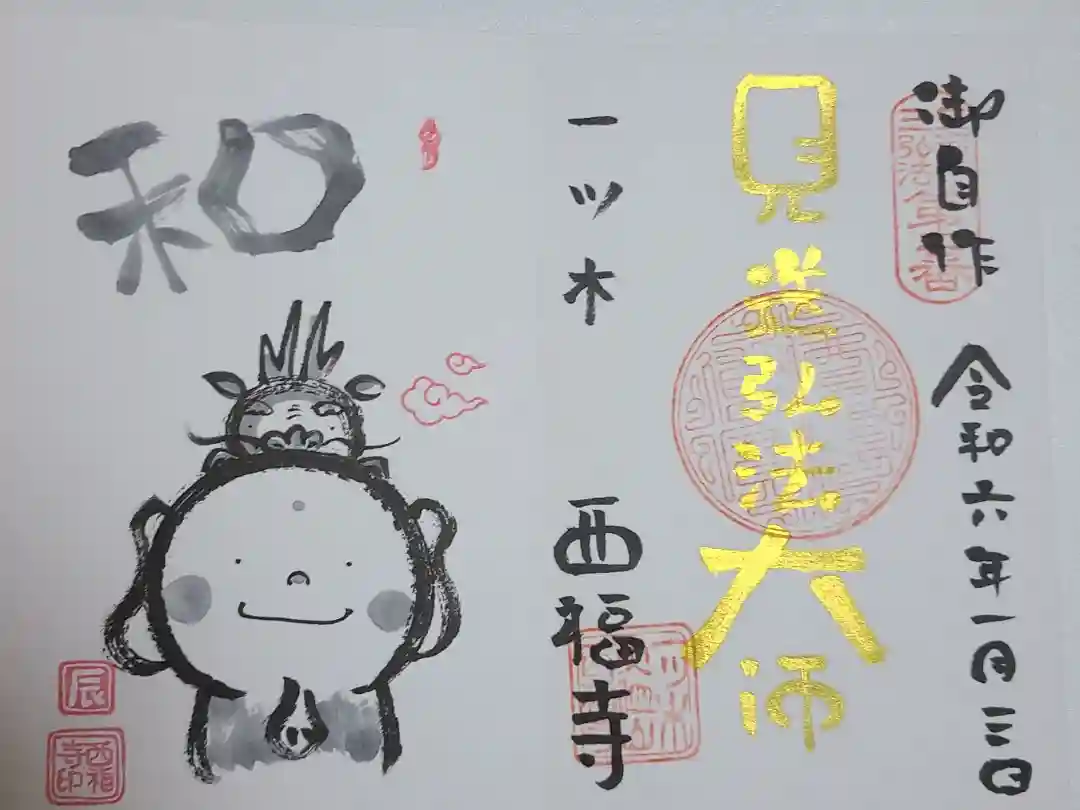 御自作
令和六年一月三日
見送弘法大師
一ツ木
西福寺
和
辰
西福寺印